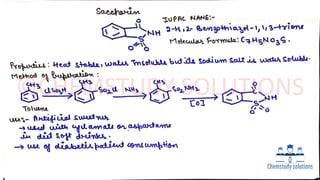 Saccharin
IUPAC NAME:-
2-H,1,2-Benzothiazol-1,1,3-trione
Molecular Formula: C7H5NO3S.
O
NH
S
O O
Properties: Heat stable, water Insoluble but its Sodium Salt is water Soluble.
Method of Preparation:
CH3 CH3 SO2Cl CH3 SO2NH2 O
ClSO3H NH3 [O] NH
S
O O
Toluene
uses:- Artificial Sweetner
→ used with cyclamate or aspartame
in diet Soft drinks.
→ use of diabetic patient consumption
CHEMSTUDY SOLUTIONS
Chemstudy solutions